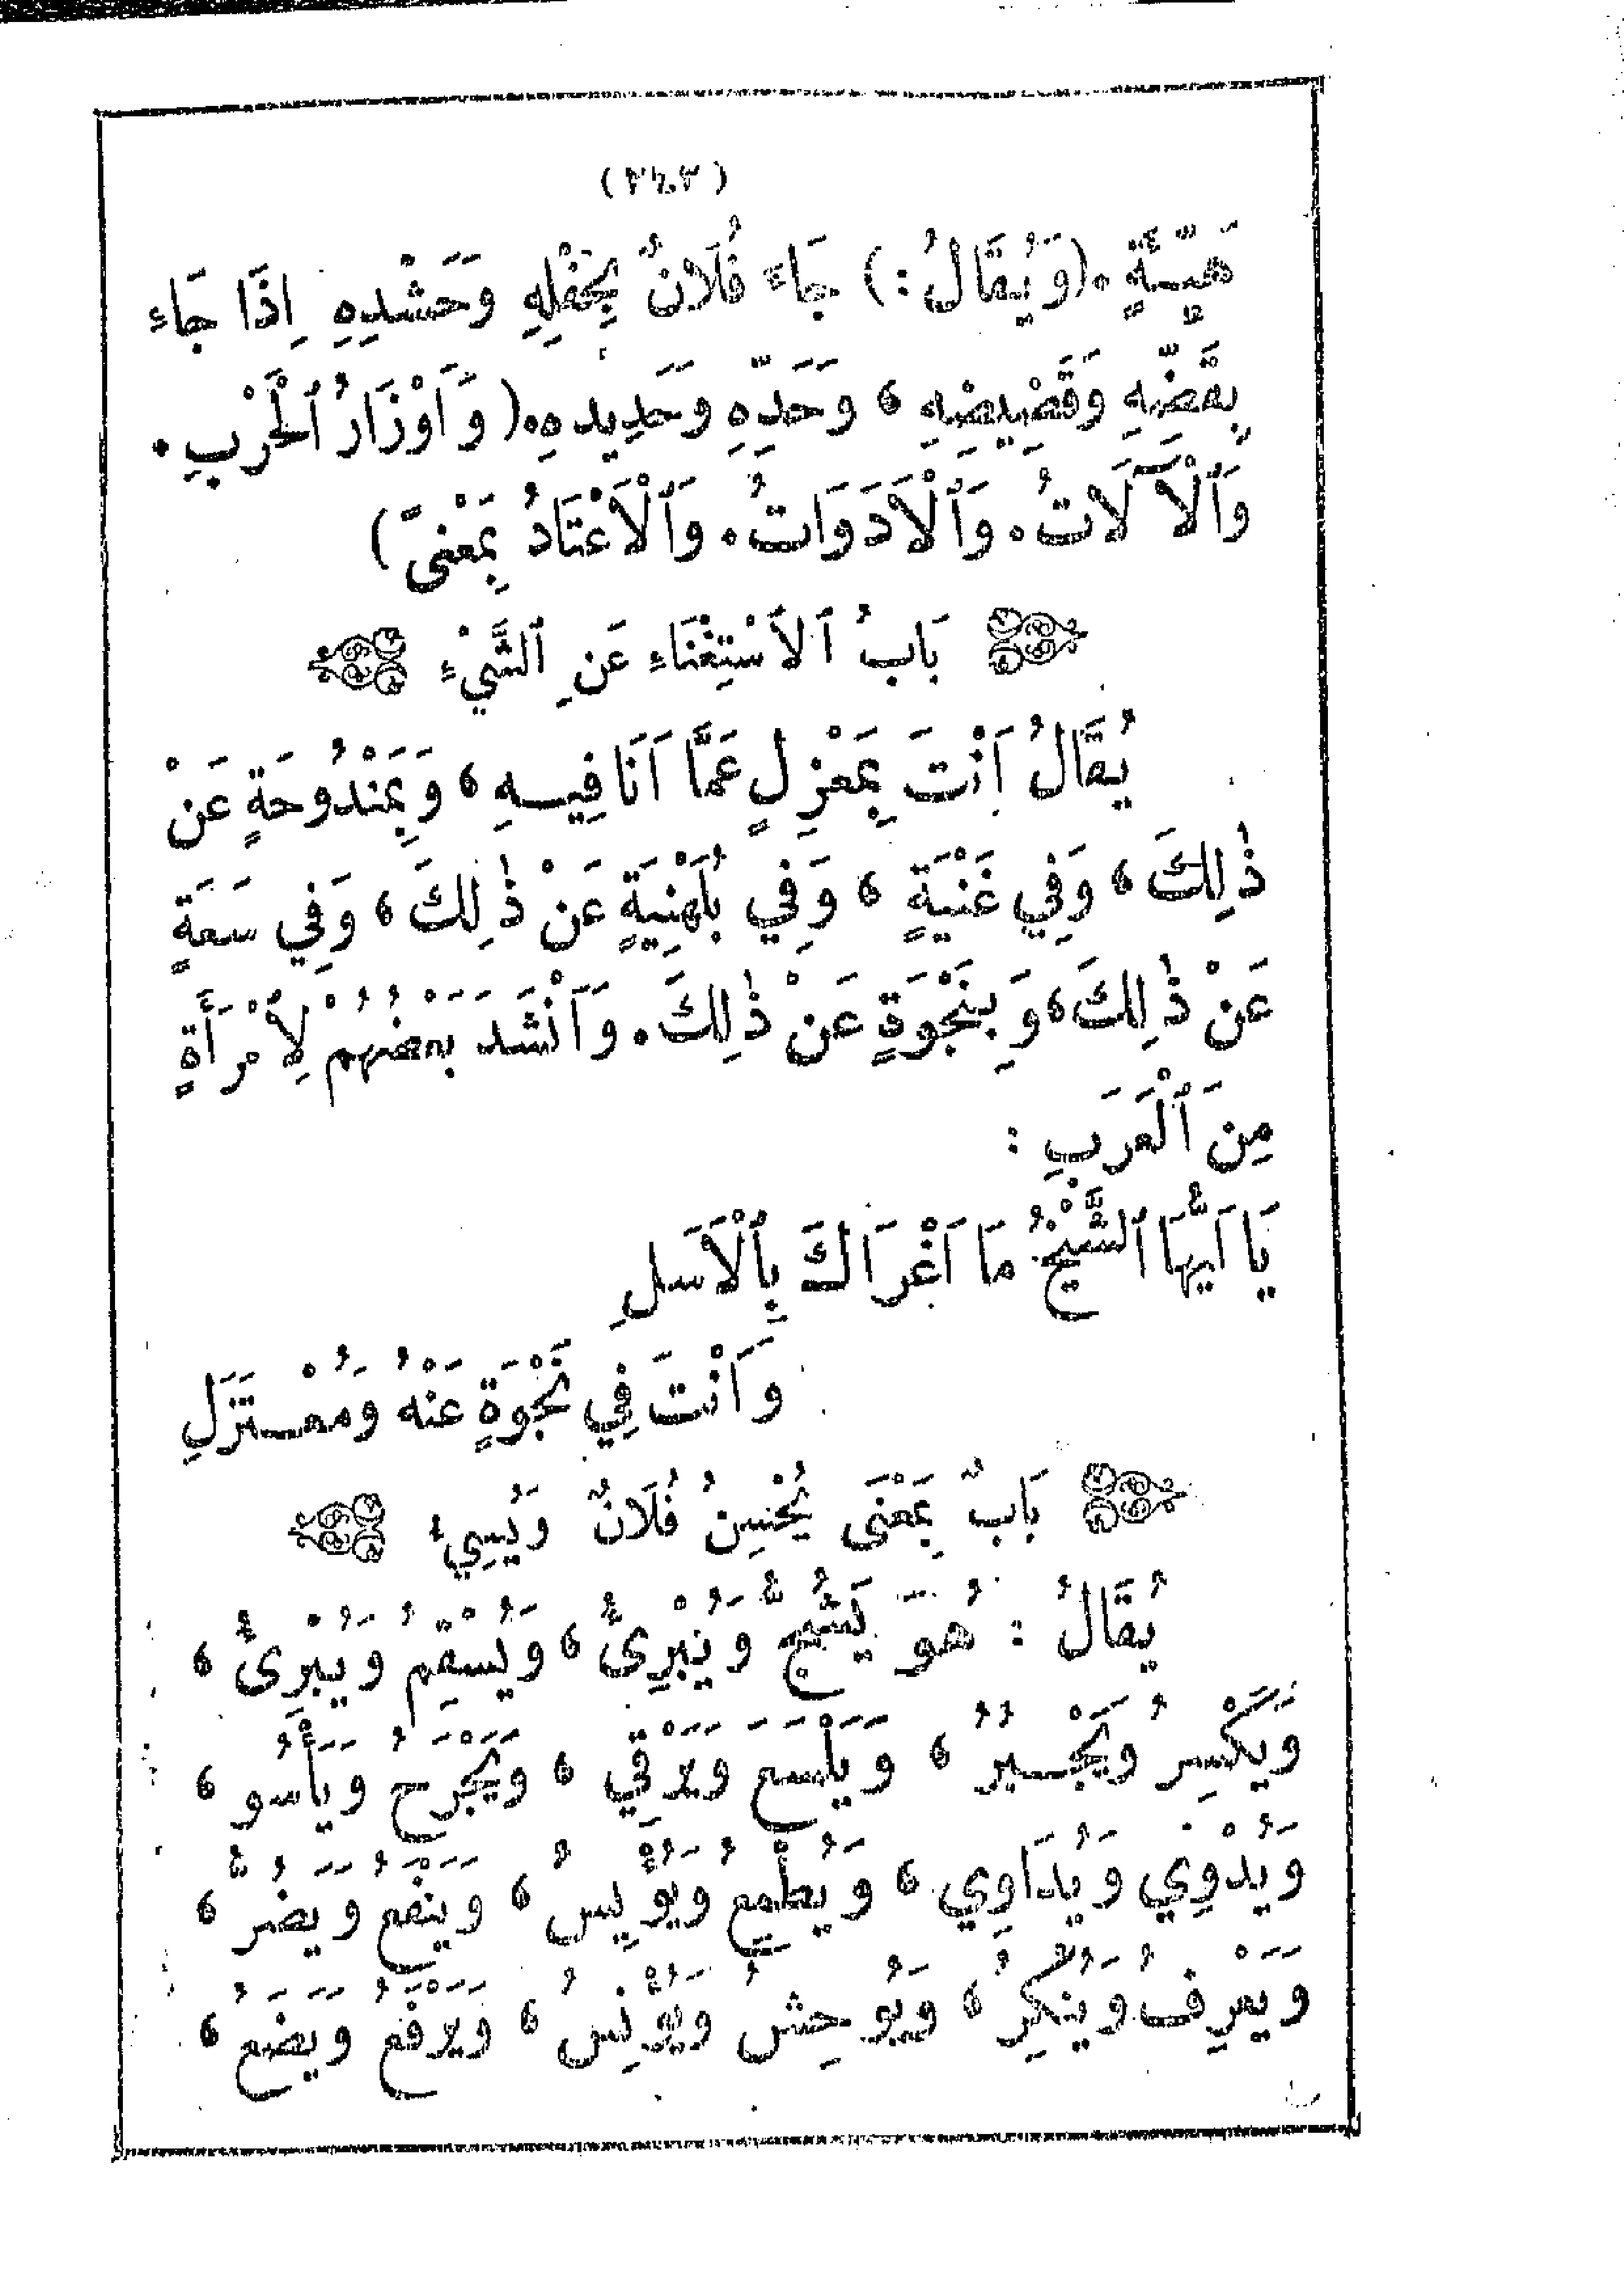 هَيِّئَةٍ . (وَيُقَالُ:) جَاءَ فُلَانٌ بِحَفْلِهِ وَحَشْدِهِ اِذَا جَاءَ
بِقَضِّهِ وَقَضِيضِهِ ، وَحَدِّهِ وَحَدِيدِهِ. (وَاَوْزَارُ ٱلْحَرْبِ .
وَٱلْآلَاتُ . وَٱلْاَدَوَاتُ . وَٱلْاَعْتَادُ بِمَعْنًى)
بَابُ ٱلِاسْتِغْنَاءِ عَنِ ٱلشَّيْءِ
يُقَالُ اَنْتَ بِمَعْزِلٍ عَمَّا اَنَا فِيهِ ، وَبِمَنْدُوحَةٍ عَنْ
ذٰلِكَ ، وَفِي غَنْيَةٍ ، وَفِي بُلَهْنِيَةٍ عَنْ ذٰلِكَ ، وَفِي سَعَةٍ
عَنْ ذٰلِكَ ، وَبِنَجْوَةٍ عَنْ ذٰلِكَ . وَاَنْشَدَ بَعْضُهُمْ لِاُمْرَأَةٍ
مِنَ ٱلْعَرَبِ :
يَا اَيُّهَا ٱلشَّيْخُ مَا اَغْرَاكَ بِٱلْاَسَلِ
وَاَنْتَ فِي نَجْوَةٍ عَنْهُ وَمُعْتَزَلِ
بَابٌ بِمَعْنَى يُحْسِنُ فُلَانٌ وَيُسِيءُ
يُقَالُ : هُوَ يَشُجُّ وَيُبْرِئُ ، وَيُسْقِمُ وَيُبْرِئُ ،
وَيَكْسِرُ وَيَجْبُرُ ، وَيَلْسَعُ وَيَرْقِي ، وَيَجْرَحُ وَيَأْسُو ،
وَيُدْوِي وَيُدَاوِي ، وَيُطْمِعُ وَيُؤْيِسُ ، وَيَنْفَعُ وَيَضُرُّ ،
وَيَعْرِفُ وَيُنْكِرُ ، وَيُوحِشُ وَيُؤْنِسُ ، وَيَرْفَعُ وَيَضَعُ ،